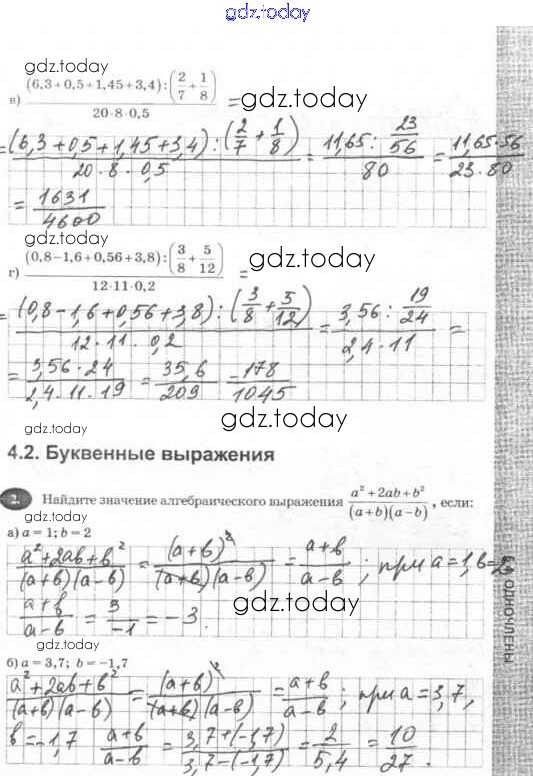 gdz.today
gdz.today
в) (6,3+0,5+1,45+3,4):(2/7+1/8) / 20·8·0,5 = gdz.today
= (6,3+0,5+1,45+3,4):(2/7+1/8) / 20·8·0,5 = 11,65:23/56 / 80 = 11,65·56 / 23·80
= 1631/4600
gdz.today
г) (0,8−1,6+0,56+3,8):(3/8+5/12) / 12·11·0,2 = gdz.today
= (0,8−1,6+0,56+3,8):(3/8+5/12) / 12·11·0,2 = 3,56:19/24 / 2,4·11 =
= 3,56·24 / 2,4·11·19 = 35,6/209 = 178/1045
gdz.today gdz.today
4.2. Буквенные выражения
2. Найдите значение алгебраического выражения a²+2ab+b² / (a+b)(a−b), если:
gdz.today
а) a = 1; b = 2
a²+2ab+b² / (a+b)(a−b) = (a+b)² / (a+b)(a−b) = a+b / a−b; при a=1, b=2
a+b / a−b = 3/−1 = −3.
gdz.today
gdz.today
б) a = 3,7; b = −1,7
a²+2ab+b² / (a+b)(a−b) = (a+b)² / (a+b)(a−b) = a+b / a−b; при a=3,7,
b=−1,7 a+b / a−b = 3,7+(−1,7) / 3,7−(−1,7) = 2/5,4 = 10/27.
одночлены